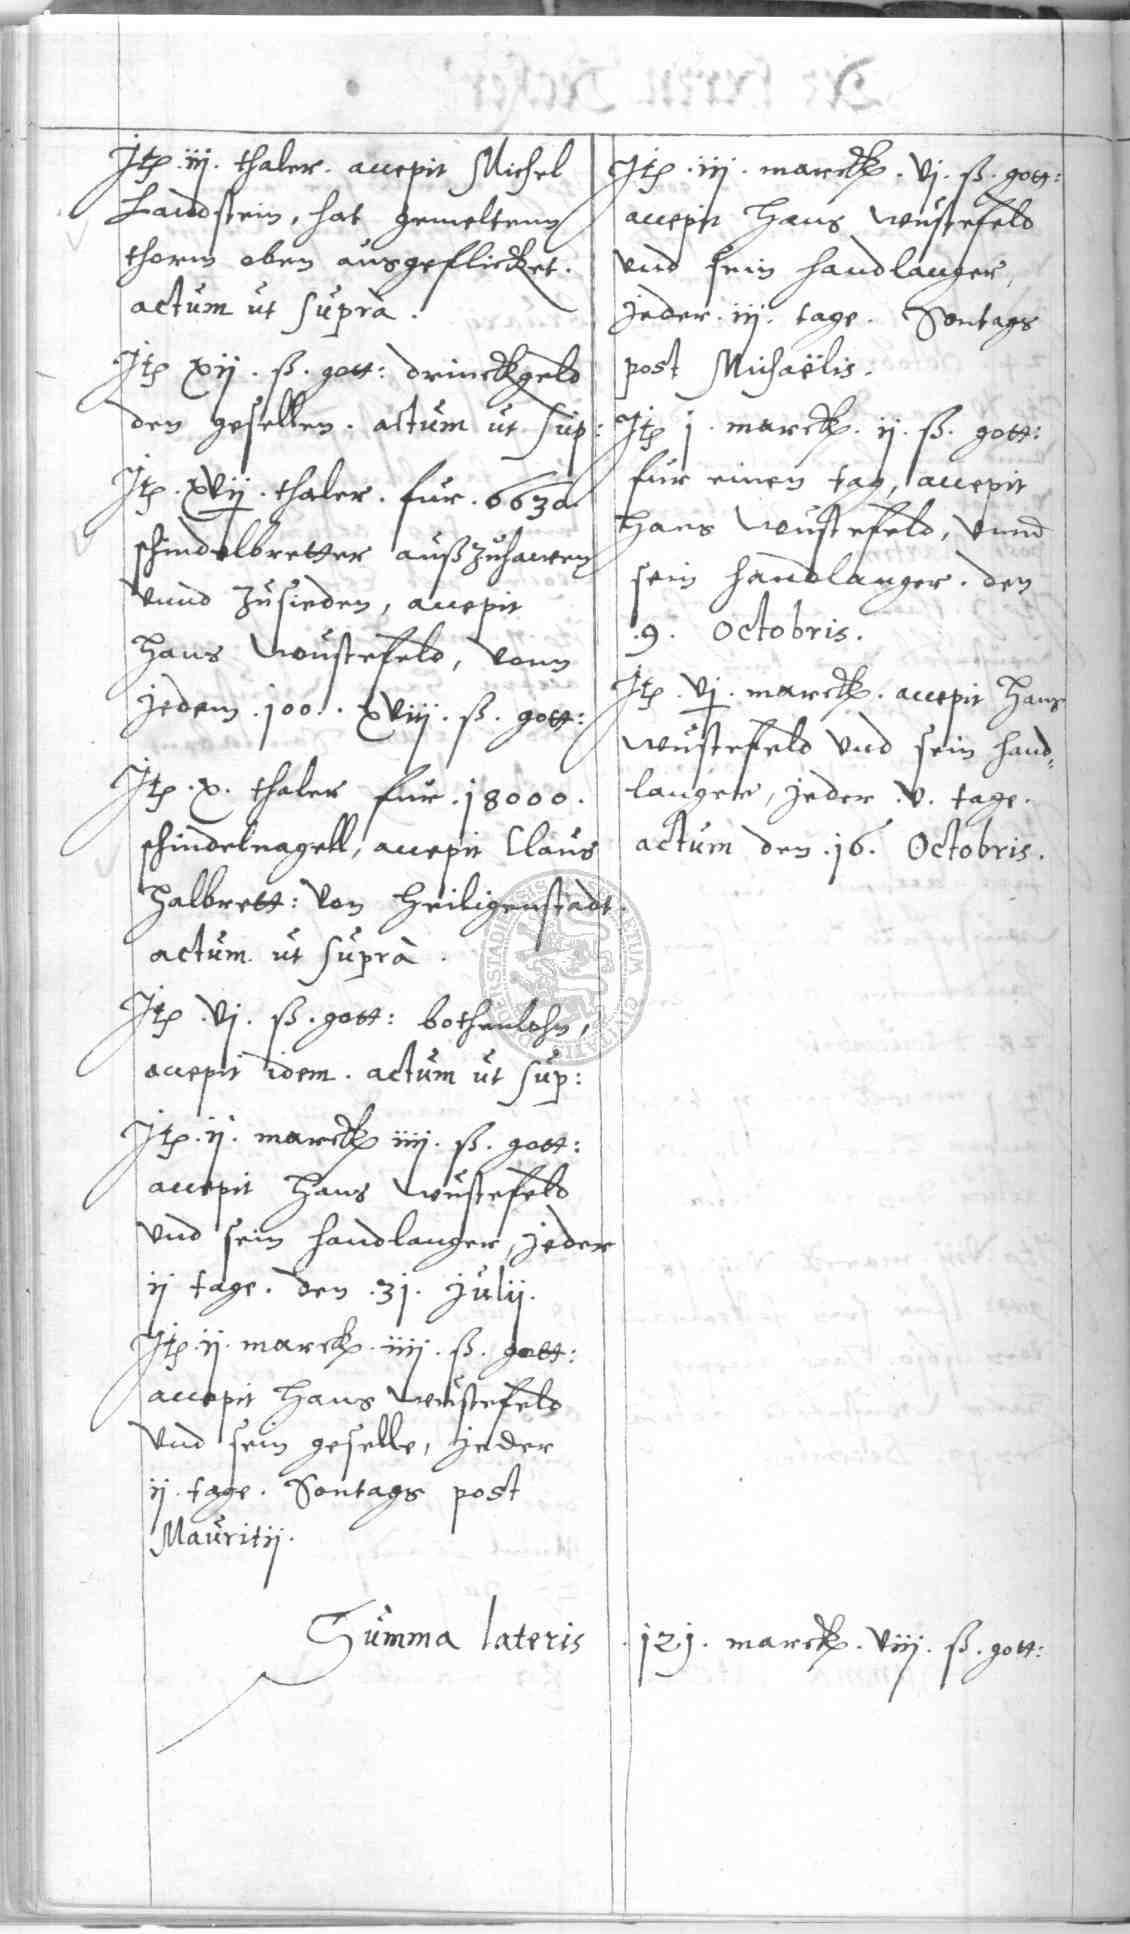 Jtp .iij. thaler. accepit Michel
Landstein, hat gemeltenn
thorm oben ausgeflicket.
actum ut suprà.
Jtp xij. ß. gott: drinckgeld
den gesellen. actum ut sup:
Jtp. xvij. thaler. fur. 6630.
schindelbretter außzuhawen
vnnd zusieden, accepit
Hans Wustefeld, vonn
jedem .100. xviij. ß. gott:
Jtp .x. thaler fur .18000.
schindelnagell, accepit Claus
Halbrett: von Heiligenstadt.
actum ut suprà.
Jtp .vj. ß. gott: bothenlohn,
accepit idem. actum ut sup:
Jtp .ij. marck iiij. ß. gott:
accepit Hans Wustefeld
vnd sein handlanger, jeder
ij tage. den .31. Julij.
Jtp .ij. marck .iiij. ß. gott:
accepit Hans Wustefeld
vnd sein geselle, jeder
ij. tage. Sontags post
Mauritij.
Jtp .iij. marck. vj. ß. gott:
accepit Hans Wustefeld
vnd sein handlanger,
jeder .iij. tage. Sontags
post Michaëlis.
Jtp j. marck. ij. ß. gott:
fur einen tag, accepit
Hans Wustefeld, vnnd
sein handlanger. den
.9. Octobris.
Jtp .vj. marck. accepit Hans
Wustefeld vnd sein hand=
langer, jeder .v. tage.
actum den .16. Octobris.
Summa lateris .121. marck. viij. ß. gott: